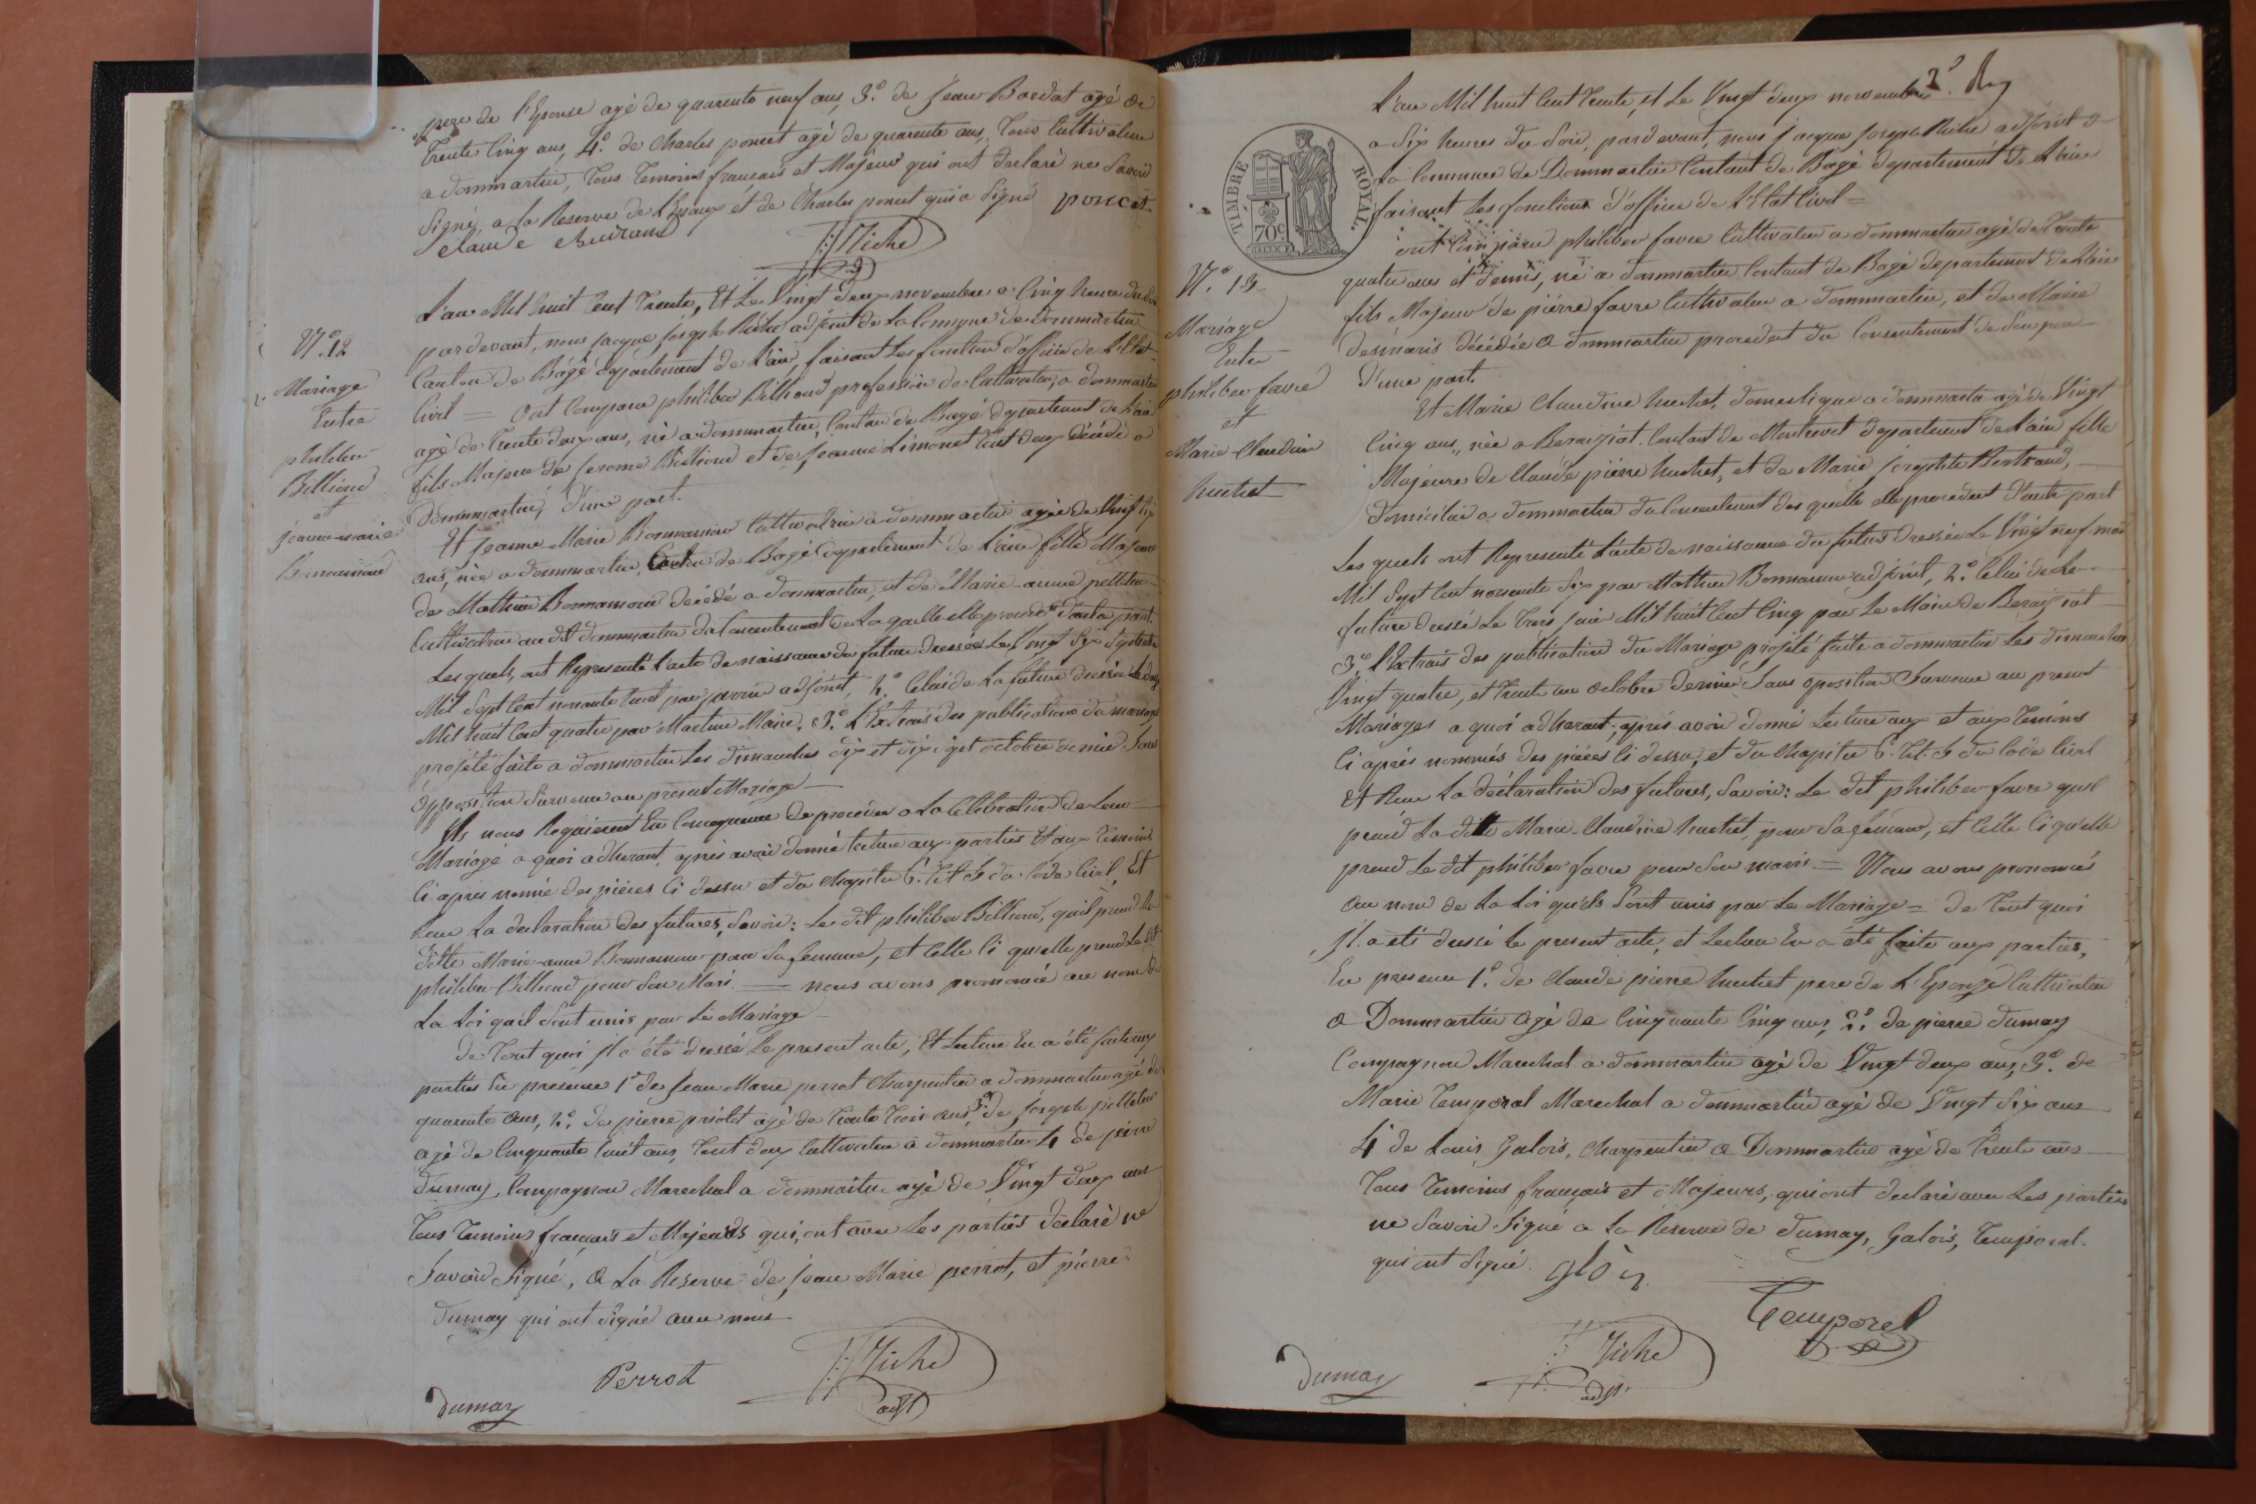 pere de l'Epouse agé de quarente neuf ans, 3.º de jean Bardat agé de
trente Cinq ans, 4.º de Charles poncet agé de quarente ans, tous Cultivateur
a dommartin, tous temoins francais et Majeur qui ont declaré ne Savoir
Signé, a la Reserve de et de Charles poncet qui a Signé poncet
Claude
Miche
adjt
Nº. 12
Mariage
Entre
philiber
Billioud
et
jeanne marie
Bonnamour
L'an Mil huit Cent trente, Et Le Vingt deux novembre a Cinq heure du Soir
pardevant, nous jacque joseph Miché adjoint de la Commune de Dommartin
Canton de Bâgé departement de l'ain, faisant Les fonctions d'officier de L'Etat
Civil = Ont Comparu philiber Billioud profession de Cultivateur, a dommartin
agé de trente deux ans, né a dommartin, Canton de Bagé departement de l'ain
fils Majeur de jerome Billioud et de jeanne Limonet tout deux décédé a
Dommartin, d'une part.
Et jeanne Marie Bonnamour Cultivatrice a dommartin agée de Vingt Six
ans, née a dommartin, Canton de Bagé departement de L'ain fille Majeure
de Mathieu Bonnamour décédé a dommartin, et de Marie anne pelletier
Cultivatrice au dit dommartin du Consentement de Laquelle elle procede d'autre part.
Les quels, ont Representé L'acte de naissance du futur dressée Le Vingt Six Septembre
Mil Sept Cent nonante huit par adjoint, 2.º Celui de La future dressée Le
Mil huit Cent quatre par Martine Maire, 3.º L'Extrait des publications du mariage
projeté faite a dommartin Les dimanches dix et dix sept octobre dernier Sans
Opposition Survenue au present Mariage
Ils nous Requierent En Consequence De proceder a La Celebration de Leur
Mariage a quoi adherant, après avoir donné lecture aux parties Et aux temoins
Ci apres nommé des pièces Ci dessu et du Chapitre 6. tit 5 du Code Civil, Et
Reçu La declaration Des futures, Savoir: Le dit philiber Billioud, quil prend La
ditte Marie anne Bonnamour pour Sa femme, et Celle Ci qu'elle prend Le dit
philiber Billioud pour Son Mari — nous avons prononcé au nom de
La Loi quil Sont unis par Le Mariage
de Tout quoi Il a été dressé Le present acte, Et Lecture En a été faite aux
parties En presence 1º de Jean Marie perrot Charpentier a dommartin agé de
quarente ans, 2.º de pierre agé de trente trois ans, 3º de joseph pelletier
agé de Cinquante huit ans, tout deux Cultivateur a dommartin 4 de pierre
dumay, Compagnon Marechal a dommartin agé de Vingt deux ans
Tous Temoins francais et Majeurs qui, ont avec Les parties declaré ne
Savoir Signé, a La Reserve de jean Marie perrot, et pierre
dumay qui ont Signé avec nous
Perrot
Miche
adjt
dumay
2º. Reg
TIMBRE ROYAL.
70c
Nº. 13
Mariage
Entre
philiber favre
et
Marie Claudine
huchet
L'an Mil huit Cent trente, et Le Vingt deux novembre
a Six heures du Soir, pardevant, nous jacque joseph Miché adjoint de
La Commune de Dommartin Canton de Bagé departement de L'ain
faisant Les fonctions d'officier de L'Etat Civil =
ont Comparu philiber favre Cultivateur a dommartin agé de trente
quatre ans et demis, né a dommartin Canton de Bagé departement de L'ain
fils Majeur de pierre favre Cultivateur a dommartin, et de Marie
desmaris décédée a dommartin procedent du Consentement de Son pere
d'une part.
Et Marie Claudine huchet, domestique a dommartin agé de Vingt
Cinq ans, née a Bereiziat Canton de Montrevel departement de L'ain fille
Majeure de Claude pierre huchet, et de Marie josephte Bertrand,
domicilié a dommartin du Consentement des quelle elle procedent d'autre part
Les quels ont Representé L'acte de naissance du futur Dressée Le Vingt neuf mai
Mil Sept Cent nonante Six par Mathieu Bonnamour adjoint, 2.º Celui de La
future dressé Le trois juin Mil huit Cent Cinq par Le Maire de Bereiziat
3.º L'Extrais des publication du Mariage projeté faite a dommartin Les dimanches
Vingt quatre, et trente un octobre dernier Sans oposition Survenue au present
Mariages a quoi adherant, aprés avoir donné Lecture aux et aux temoins
Ci aprés nommés des pièces Ci dessu, et du Chapitre 6. tit. 5 du Code Civil
Et Reçu La déclaration Des futures, Savoir: Le dit philiber favre quil
prend La dite Marie Claudine huchet, pour Sa femme, et Celle Ci qu'elle
prend Le dit philiber favre pour Son maris = Nous avons prononcés
au nom de La Loi quils Sont unis par Le Mariage = de tout quoi
Il a été dressé le present acte, et Lecture En a été faite aux parties,
En presence 1.º de Claude pierre huchet pere de L'Epouze Cultivateur
a Dommartin agé de Cinquante Cinq ans, 2.º de pierre dumay
Compagnon Marechal a dommartin agé de Vingt deux ans, 3.º de
Marie Temporal Marechal a dommartin agé de Vingt Six ans
4º de Louis Galois, Charpentier a Dommartin agé de trente ans
Tous Temoins français et Majeurs, qui ont declaré avec Les parties
ne Savoir Signé a La Reserve de dumay, Galois, Temporal.
qui ont Signé.
Temporel
Miche
adjt.
Dumay